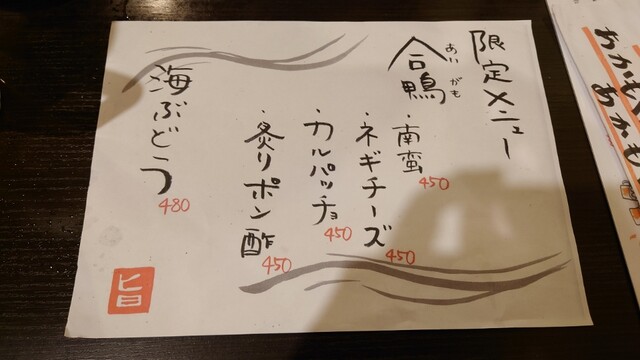 限定メニュー
合鴨
あい がも
・南蛮
450
・ネギチーズ
450
・カルパッチョ
450
・炙りポン酢
450
海ぶどう
480
旨